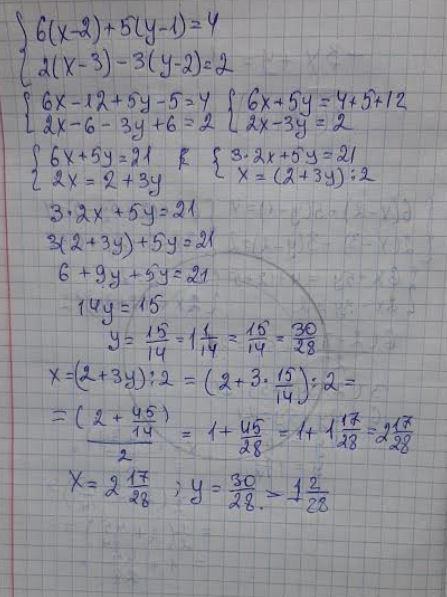 { 6(x-2)+5(y-1)=4
{ 2(x-3)-3(y-2)=2
{ 6x-12+5y-5=4 { 6x+5y=4+5+12
{ 2x-6-3y+6=2 { 2x-3y=2
{ 6x+5y=21 { 3·2x+5y=21
{ 2x=2+3y { x=(2+3y):2
3·2x+5y=21
3(2+3y)+5y=21
6+9y+5y=21
14y=15
y=15/14=1 1/14=15/14=30/28
x=(2+3y):2=(2+3·15/14):2=
=(2+45/14)/2=1+45/28=1+1 17/28=2 17/28
x=2 17/28; y=30/28=1 2/28